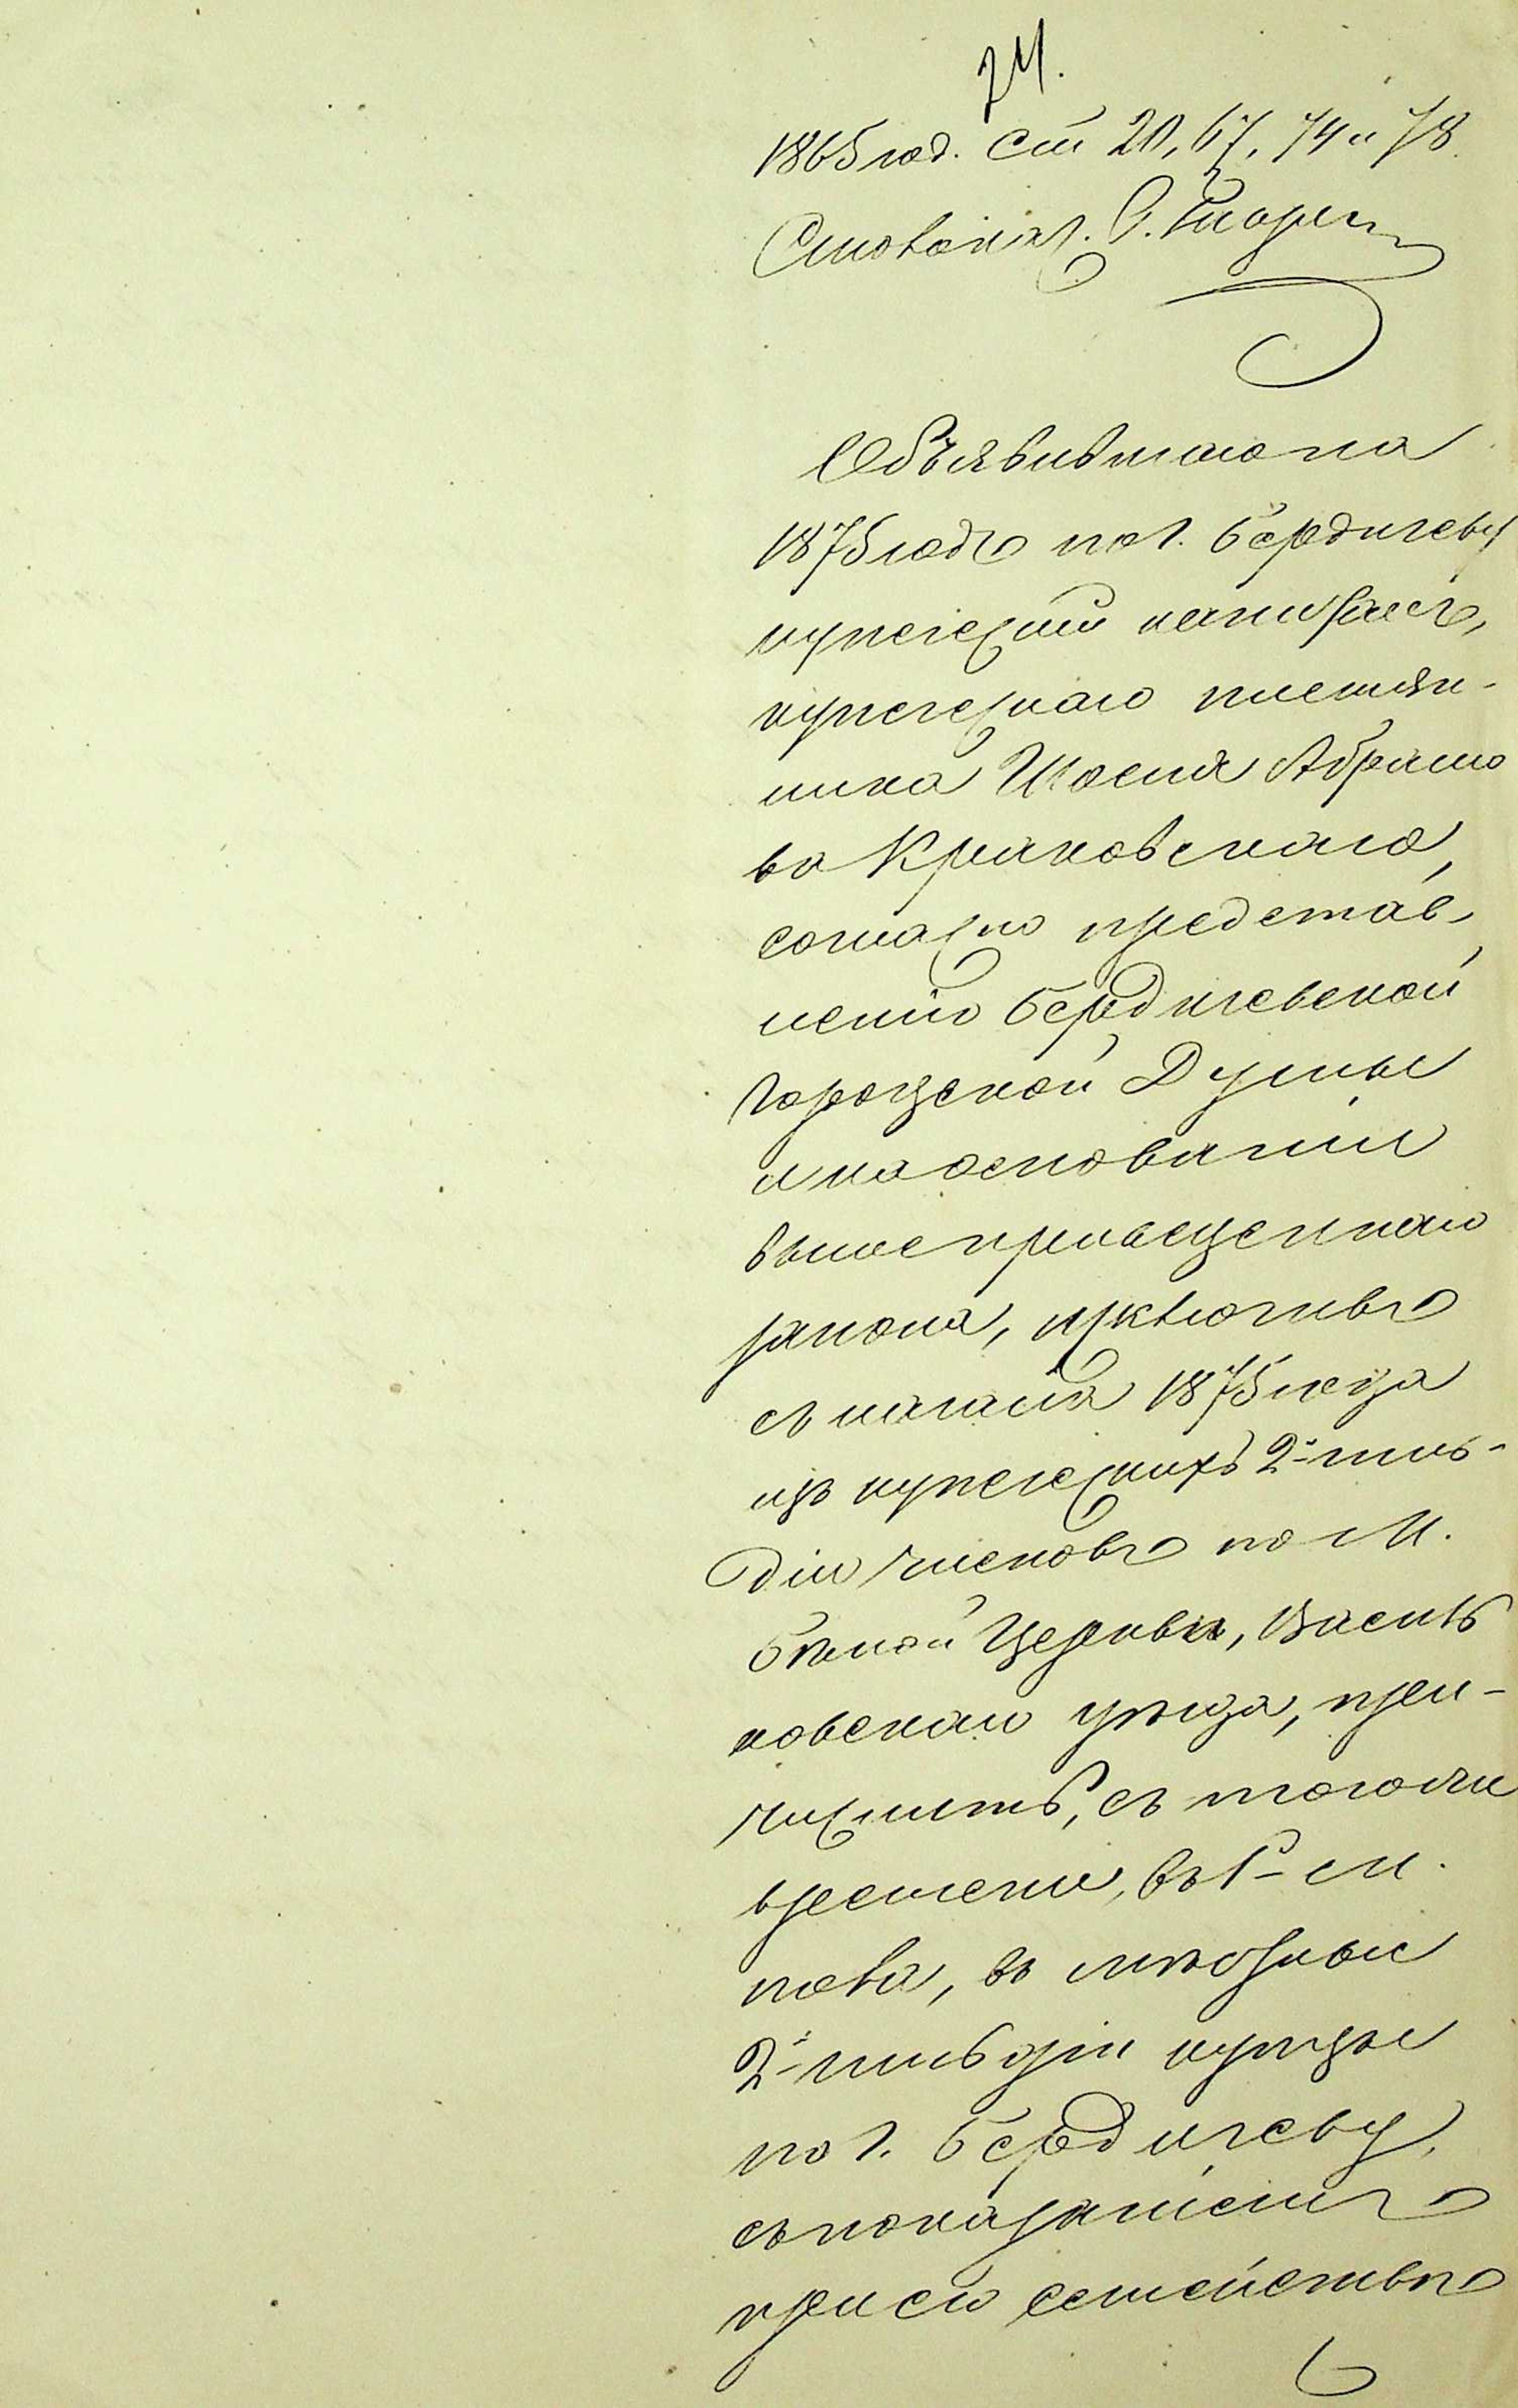 24.
1865 год. Ст 20, 67, 74 и 78.
Столонач.
Объявившаго на
1875 годъ по г. Бердичеву
купеческій капиталъ,
купеческаго племян-
ника Абрамо
ва Краковскаго,
согласно представ
ленію Бердичевской
Городской Думы
и на основаніи
вышеприведеннаго
закона, исключивъ
съ начала 1875 года
изъ купеческихъ 2й гиль-
діи членовъ по м.
Бѣлой Церкви, Василь
ковскаго уѣзда, при-
числить, съ того же
времени, въ г. м.
въ мѣстные
2й гильдіи купцы
по г. Бердичеву,
съ показаніемъ
при семъ семействѣ